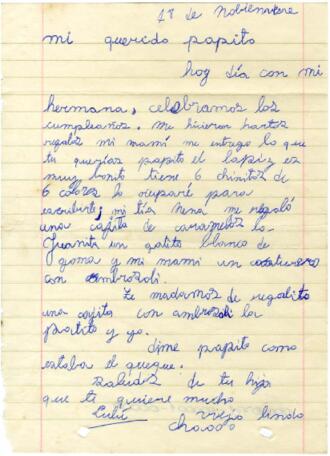 18 de Nobienvere
mi querido papito
hoy día con mi
hermana, celebramos los
cumpleaños. me hicieron hartos
regalos mi mamá me entrego lo que
tu querías papito el lápiz es
muy bonito tiene 6 chinitos de
6 colores lo ocuparé para
escribirte, mi tía nena me regaló
una cajita de caramelos la
Juanita un gatito blanco de
goma y mi mami un
con ambrosoli.
Te madamos de regalito
una cajita con ambrosoli la
patito y yo.
dime papito como
estaba el queque.
saludos de tu hija
que te quiere mucho
Lulú viejo lindo
chaooo